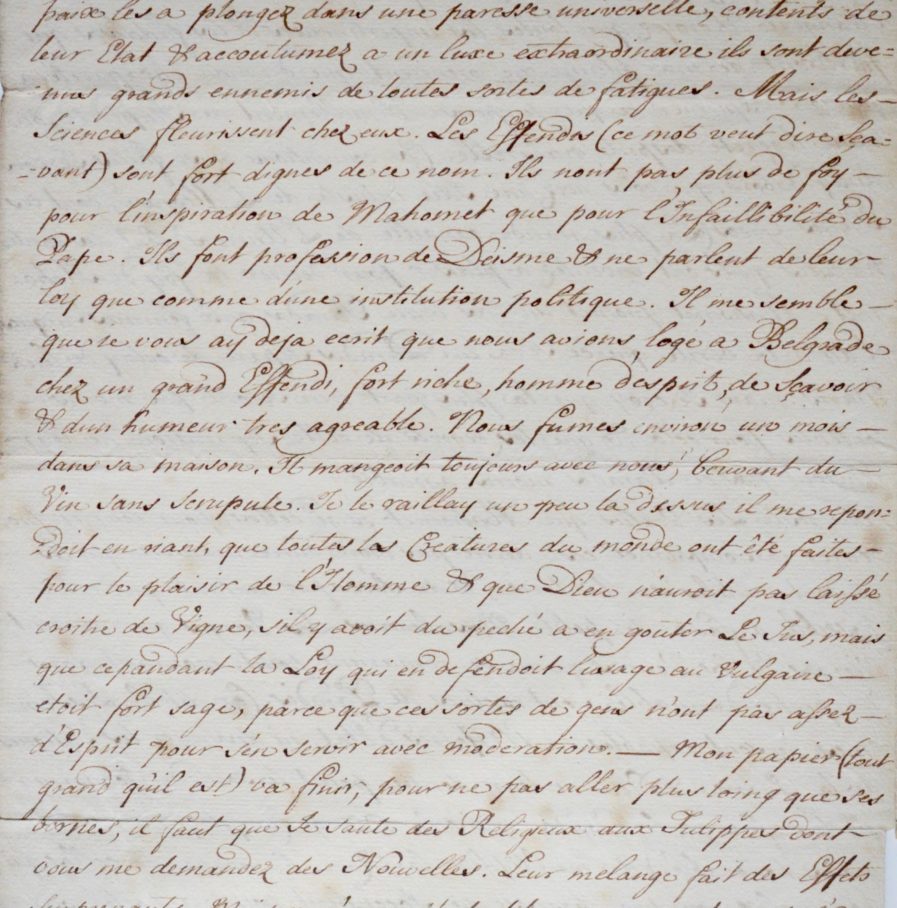 paix les a plongez dans une paresse universelle, contents de
leur Etat & accoutumez a un luxe extraordinaire ils sont deve=
nus grands ennemis de toutes sortes de fatigues. Mais les —
Sciences fleurissent chez eux. Les Effendis (ce mot veut dire Sça=
=vant) sont fort dignes de ce nom. Ils nont pas plus de foy —
pour l'inspiration de Mahomet que pour l'Infaillibilité du
Pape. Ils font profession de Deisme & ne parlent de leur
loy que comme d'une institution politique. Il me semble —
que je vous ay deja ecrit que nous avions logé a Belgrade
chez un grand Effendi, fort riche, homme d'esprit, de sçavoir
& d'un humeur tres agreable. Nous fumes environ un mois —
dans sa maison. Il mangeoit toujours avec nous, beuvant du —
Vin sans scrupule. Je le raillay un peu la dessus il me repon=
=doit en riant, que toutes les Creatures du monde ont été faites —
pour le plaisir de l'Homme & que Dieu n'auroit pas laissé
croitre de Vigne, s'il y avoit du peché a en gouter Le Jus, mais
que cepandant la Loy qui en defendoit l'usage au Vulgaire —
etoit fort sage, parce que ces sortes de gens n'ont pas assez —
d'Esprit pour s'en servir avec moderation. — Mon papier (tout
grand qu'il est) va finir, pour ne pas aller plus loing que ses
bornes, il faut que Je saute des Religieux aux Tulippes dont —
vous me demandez des Nouvelles. Leur melange fait des Effets